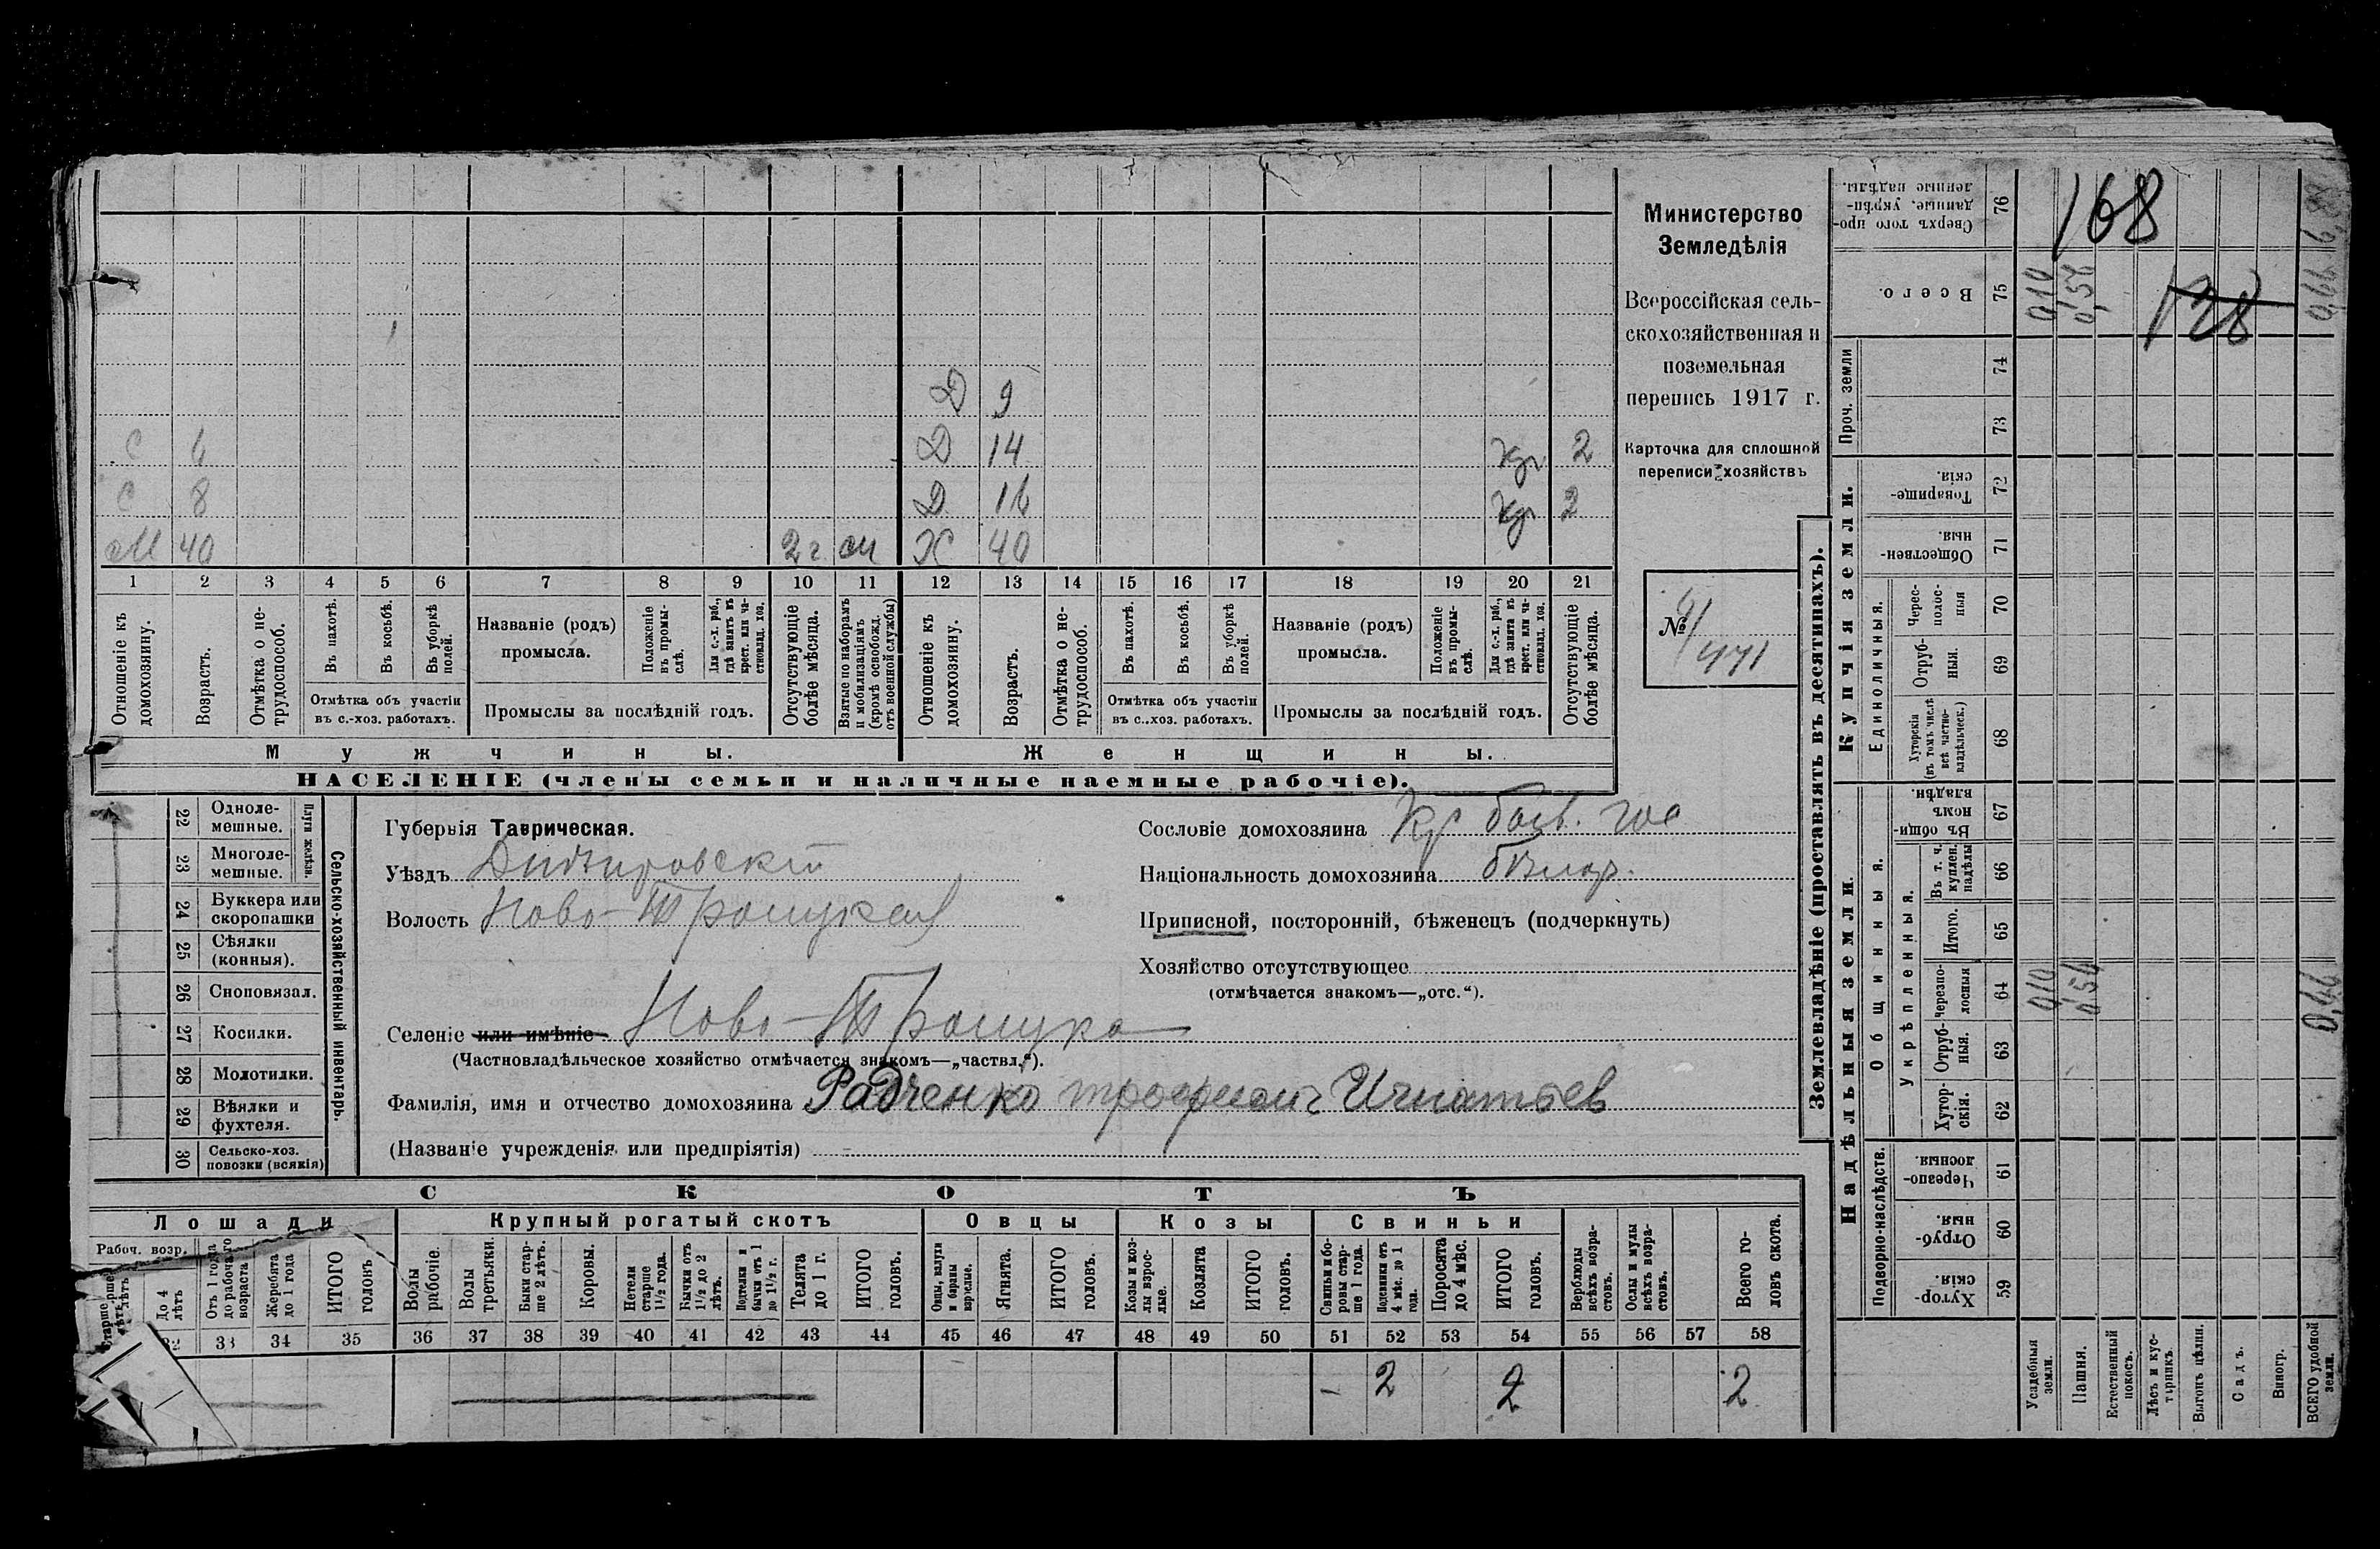 Д 9
С 6 Д 14 кр 2
С 8 Д 16 кр 2
М 40 2 г. Х 40
1 2 3 4 5 6 7 8 9 10 11 12 13 14 15 16 17 18 19 20 21
Отношеніе къ домохозяину.
Возрастъ.
Отмѣтка о не-трудоспособ.
Въ пахотѣ.
Въ косьбѣ.
Въ уборкѣ полей.
Отмѣтка объ участіи
въ с.-хоз. работахъ.
Названіе (родъ)
промысла.
Положеніе въ промы-слѣ.
Для с.-х. раб., гдѣ занятъ въ крест. или ча-стновлад. хоз.
Промыслы за послѣдній годъ.
Отсутствующіе болѣе мѣсяца.
Взятые по наборамъ и мобилизаціямъ (кромѣ освобожд. отъ военной службы)
Отношеніе къ домохозяину.
Возрастъ.
Отмѣтка о не-трудоспособ.
Въ пахотѣ.
Въ косьбѣ.
Въ уборкѣ полей.
Отмѣтка объ участіи
въ с..хоз. работахъ.
Названіе (родъ)
промысла.
Положеніе въ промы-слѣ.
Для с.-х. раб., гдѣ занята въ крест. или ча-стновлад. хоз.
Промыслы за послѣдній годъ.
Отсутствующіе болѣе мѣсяца.
Мужчины. Женщины.
НАСЕЛЕНІЕ (члены семьи и наличные наемные рабочіе).
Министерство
Земледѣлія
Всероссійская сель-
скохозяйственная и
поземельная
перепись 1917 г.
Карточка для сплошной
переписи хозяйствъ
№ 471
22 Одноле-мешные.
23 Многоле-мешные.
Плуги желѣзн.
24 Буккера или скоропашки
25 Сѣялки (конныя).
26 Сноповязал.
27 Косилки.
28 Молотилки.
29 Вѣялки и фухтеля.
30 Сельско-хоз. повозки (всякія)
Сельско-хозяйственный инвентарь.
Губернія Таврическая.
Уѣздъ Днѣпровскій
Волость Ново-Троицкая
Сословіе домохозяина Кр
Національность домохозяина
Приписной, посторонній, бѣженецъ (подчеркнуть)
Хозяйство отсутствующее
(отмѣчается знакомъ—„отс.“).
Селеніе или имѣніе Ново-Троицко
(Частновладѣльческое хозяйство отмѣчается знакомъ—„частвл.“).
Фамилія, имя и отчество домохозяина Радченко Трофимъ Игнатьев
(Названіе учрежденія или предпріятія)
СКОТЪ
Лошади Крупный рогатый скотъ Овцы Козы Свиньи
Рабоч. возр.
До 4 лѣтъ
Отъ 1 года до рабочаго возраста
Жеребята до 1 года
ИТОГО головъ
Волы рабочіе.
Волы третьяки.
Быки стар-ше 2 лѣтъ.
Коровы.
Нетели старше 1½ года.
Бычки отъ 1½ до 2 лѣтъ.
Подтелки и бычки отъ 1 до 1½ г.
Телята до 1 г.
ИТОГО головъ.
Овцы, валухи и бараны взрослые.
Ягнята.
ИТОГО головъ.
Козы и коз-лы взрос-лые.
Козлята
ИТОГО головъ.
Свиньи и бо-ровы стар-ше 1 года.
Подсвинки отъ 4 мѣс. до 1 года.
Поросята до 4 мѣс.
ИТОГО головъ.
Верблюды всѣхъ возра-стовъ.
Ослы и мулы всѣхъ возра-стовъ.
Всего го-ловъ скота.
33 34 35 36 37 38 39 40 41 42 43 44 45 46 47 48 49 50 51 52 53 54 55 56 57 58
2 2 2
Землевладѣніе (проставлять въ десятинахъ).
Надѣльныя земли. Купчія земли.
Проч. земли
Подворно-наслѣдств.
Общинныя.
Укрѣпленныя.
Единоличныя.
Сверхъ того про-данные, укрѣп-ленные надѣлы. 76
Всего. 75
74
73
Товарище-скія. 72
Обществен-ныя. 71
Черес-полос-ныя 70
Отруб-ныя. 69
Хуторскія (въ томъ числѣ всѣ частно-владѣльческ.) 68
Въ общин-номъ владѣн. 67
Въ т. ч. куплен. надѣлы 66
Итого. 65
Черезпо-лосныя 64
Отруб-ныя. 63
Хутор-скія. 62
Черезпо-лосныя 61
Отруб-ныя. 60
Хутор-скія. 59
Усадебныя земли.
Пашня.
Естественный покосъ.
Лѣсъ и кус-тарникъ.
Выгонъ цѣлин.
Садъ.
Виногр.
ВСЕГО удобной земли.
168
128
0,10
0,54